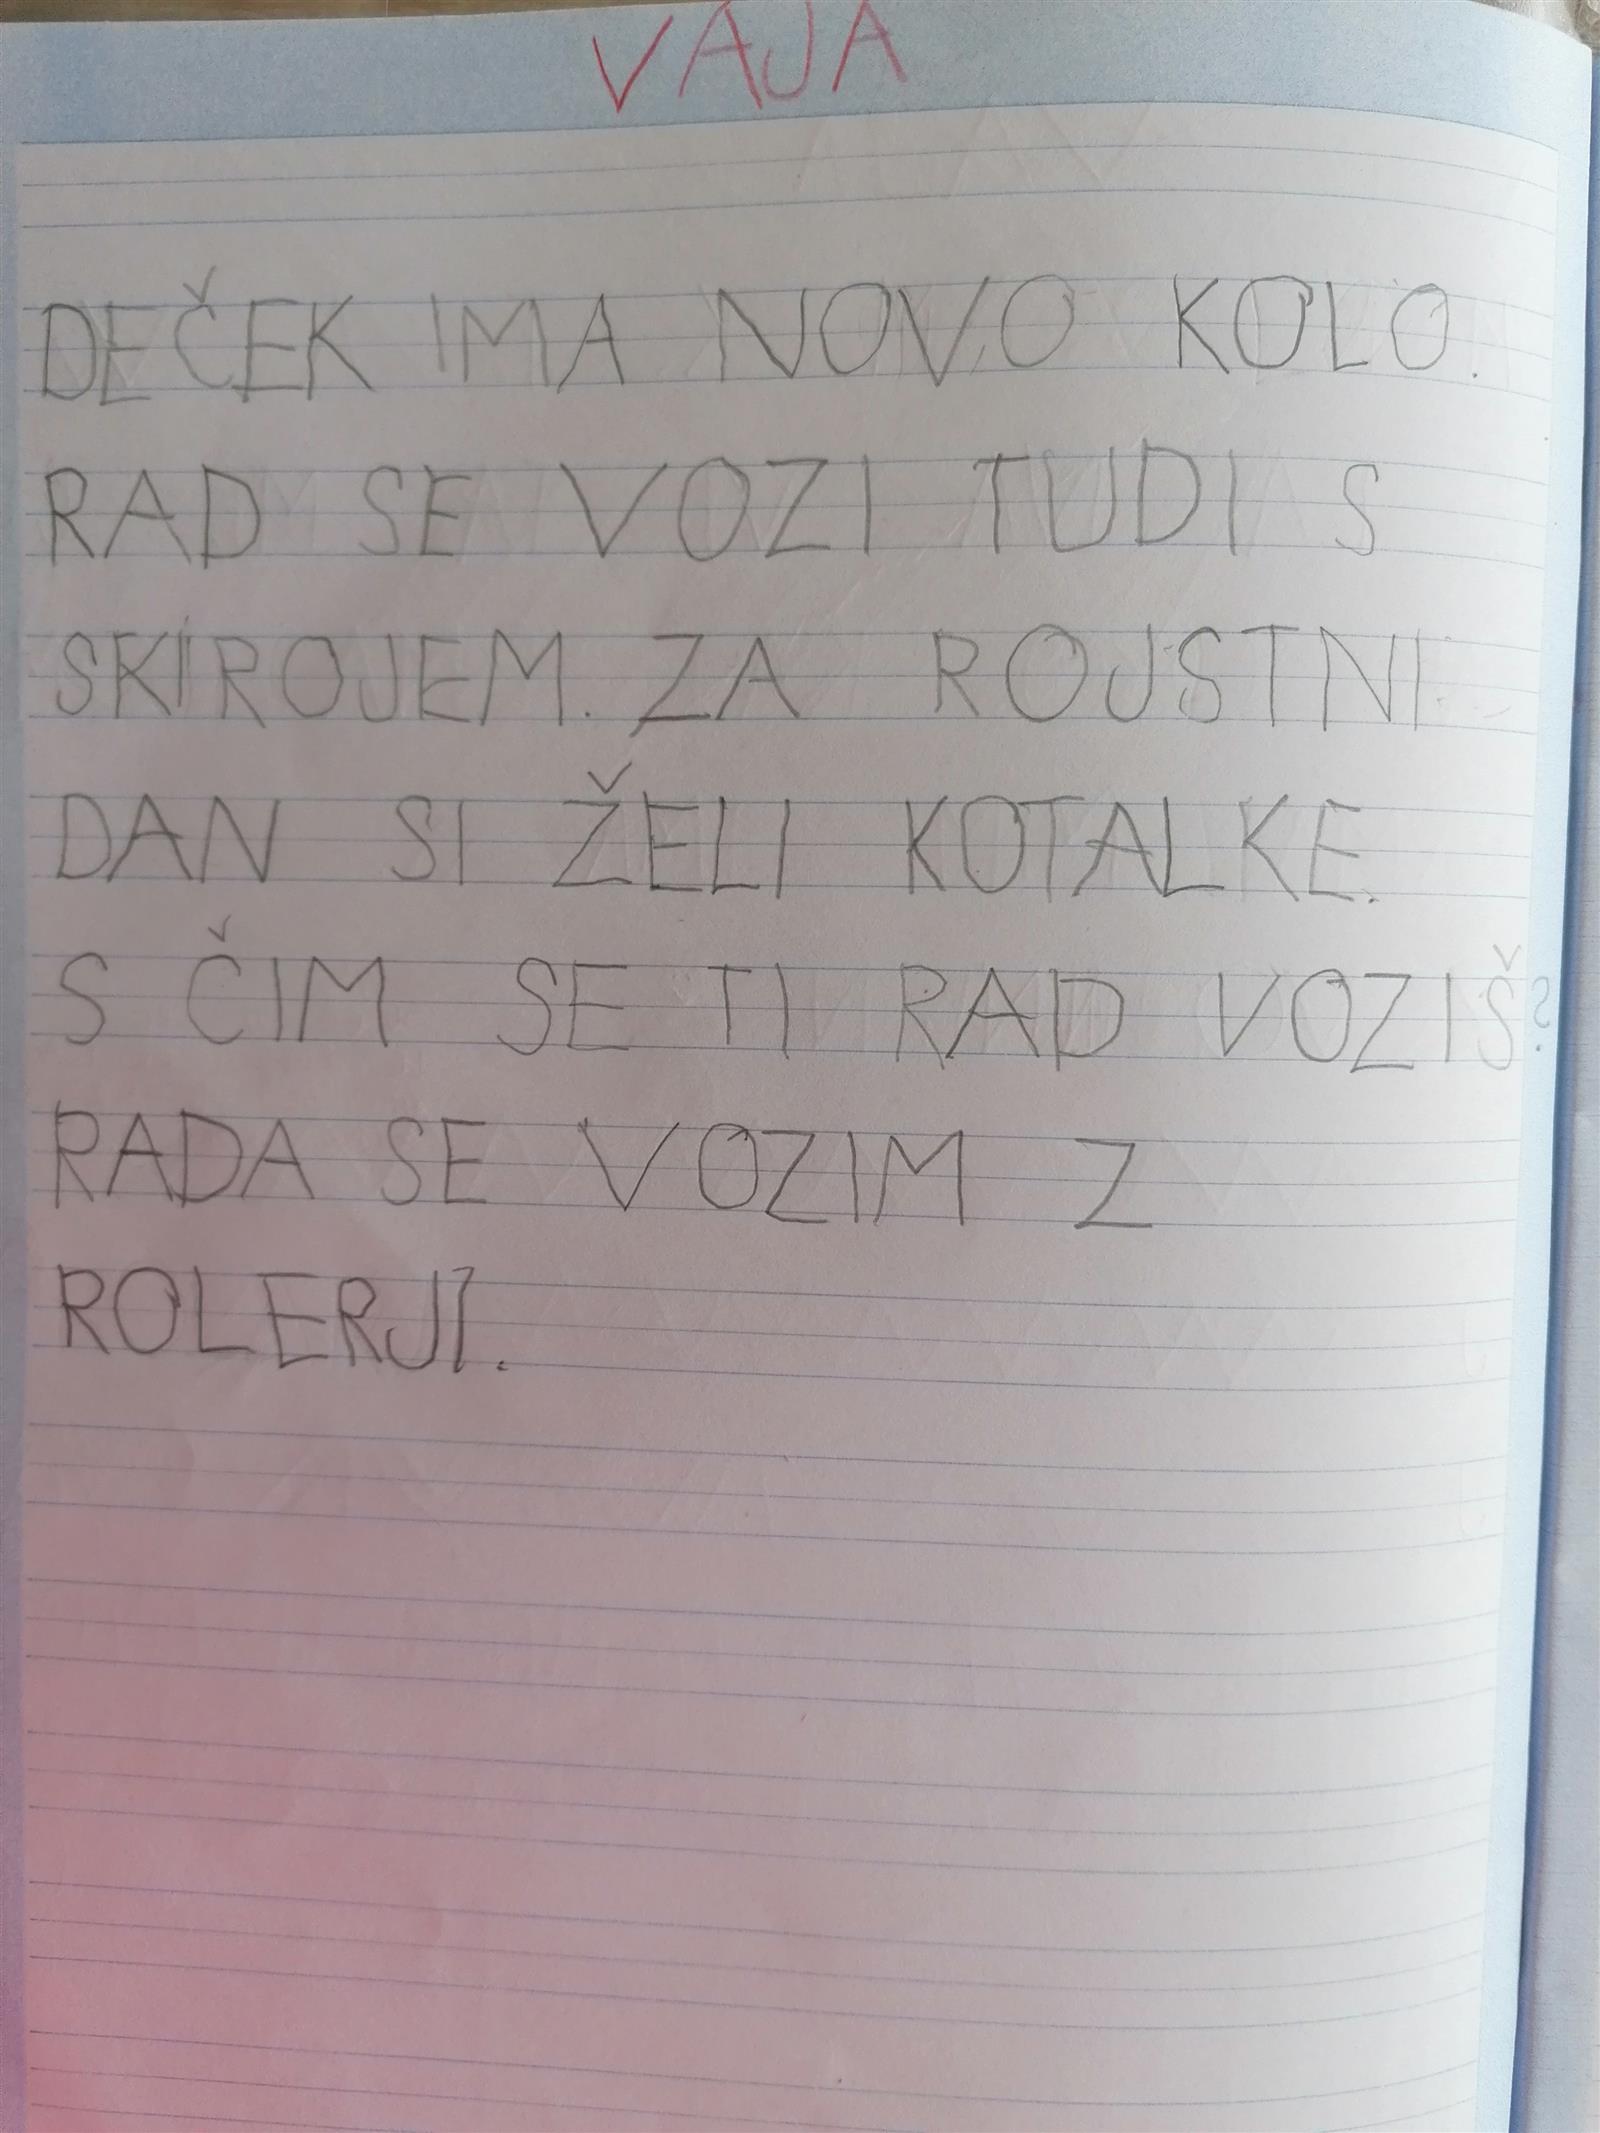 VAJA
DEČEK IMA NOVO KOLO.
RAD SE VOZI TUDI S
SKIROJEM. ZA ROJSTNI
DAN SI ŽELI KOTALKE.
S ČIM SE TI RAD VOZIŠ?
RADA SE VOZIM Z
ROLERJI.